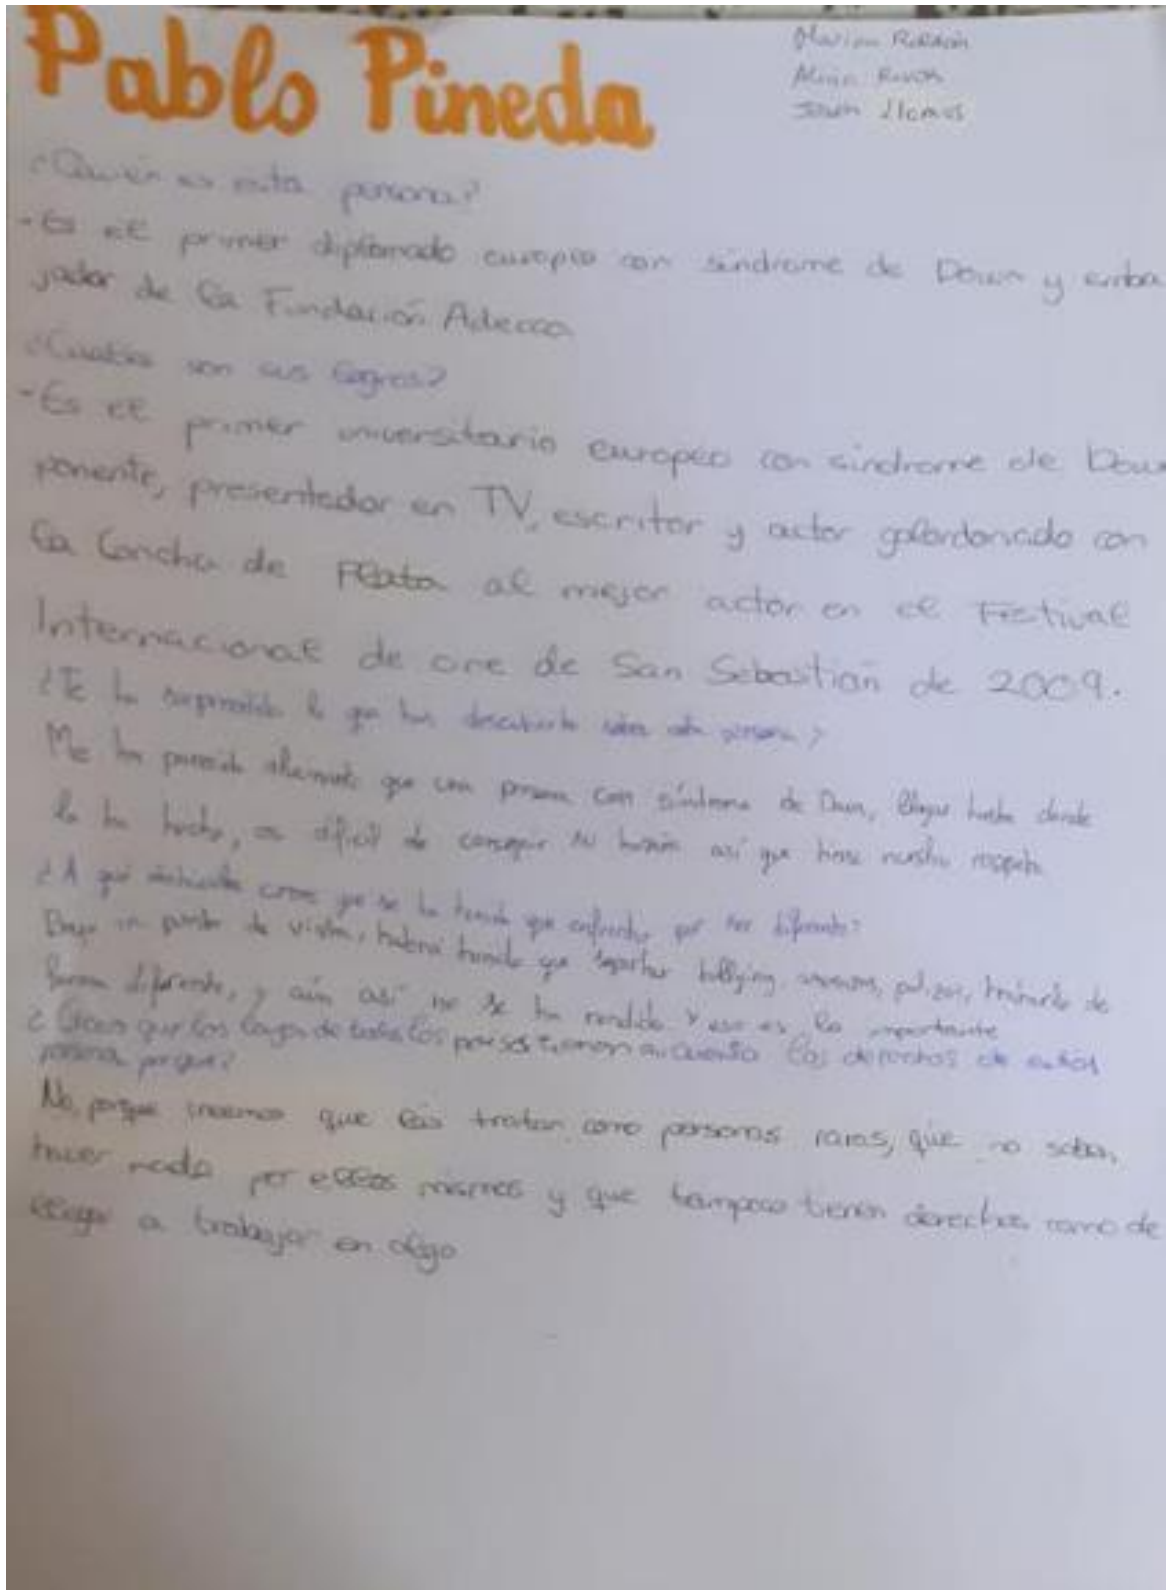 Pablo Pineda
Roldán
Joan Llamas
¿Quién es esta persona?
-Es el primer diplomado europeo con síndrome de Down y emba
jador de la Fundación Adecco
¿Cuáles son sus logros?
-Es el primer universitario europeo con síndrome de Down
ponente, presentador en TV, escritor y actor galardonado con
la Concha de Plata al mejor actor en el Festival
Internacional de cine de San Sebastián de 2009.
¿Te ha sorprendido lo que has descubierto sobre esta persona?
Me ha parecido que una persona con síndrome de Down, llegue hasta donde
lo ha hecho, es díficil de conseguir su así que tiene nuestro respeto
¿A qué crees que se ha tenido que enfrentar por ser diferente?
Bajo mi punto de vista, habrá tenido que soportar bullying, palizas, tratarlo de
forma diferente, y aún así no se ha rendido y eso es lo importante
¿Crees que las leyes de todos los países tienen en cuenta los derechos de estas
persona, porque?
No, porque creemos que las tratan como personas raras, que no saben
hacer nada por ellos mismos y que tampoco tienen derechos como de
llegar a trabajar en algo